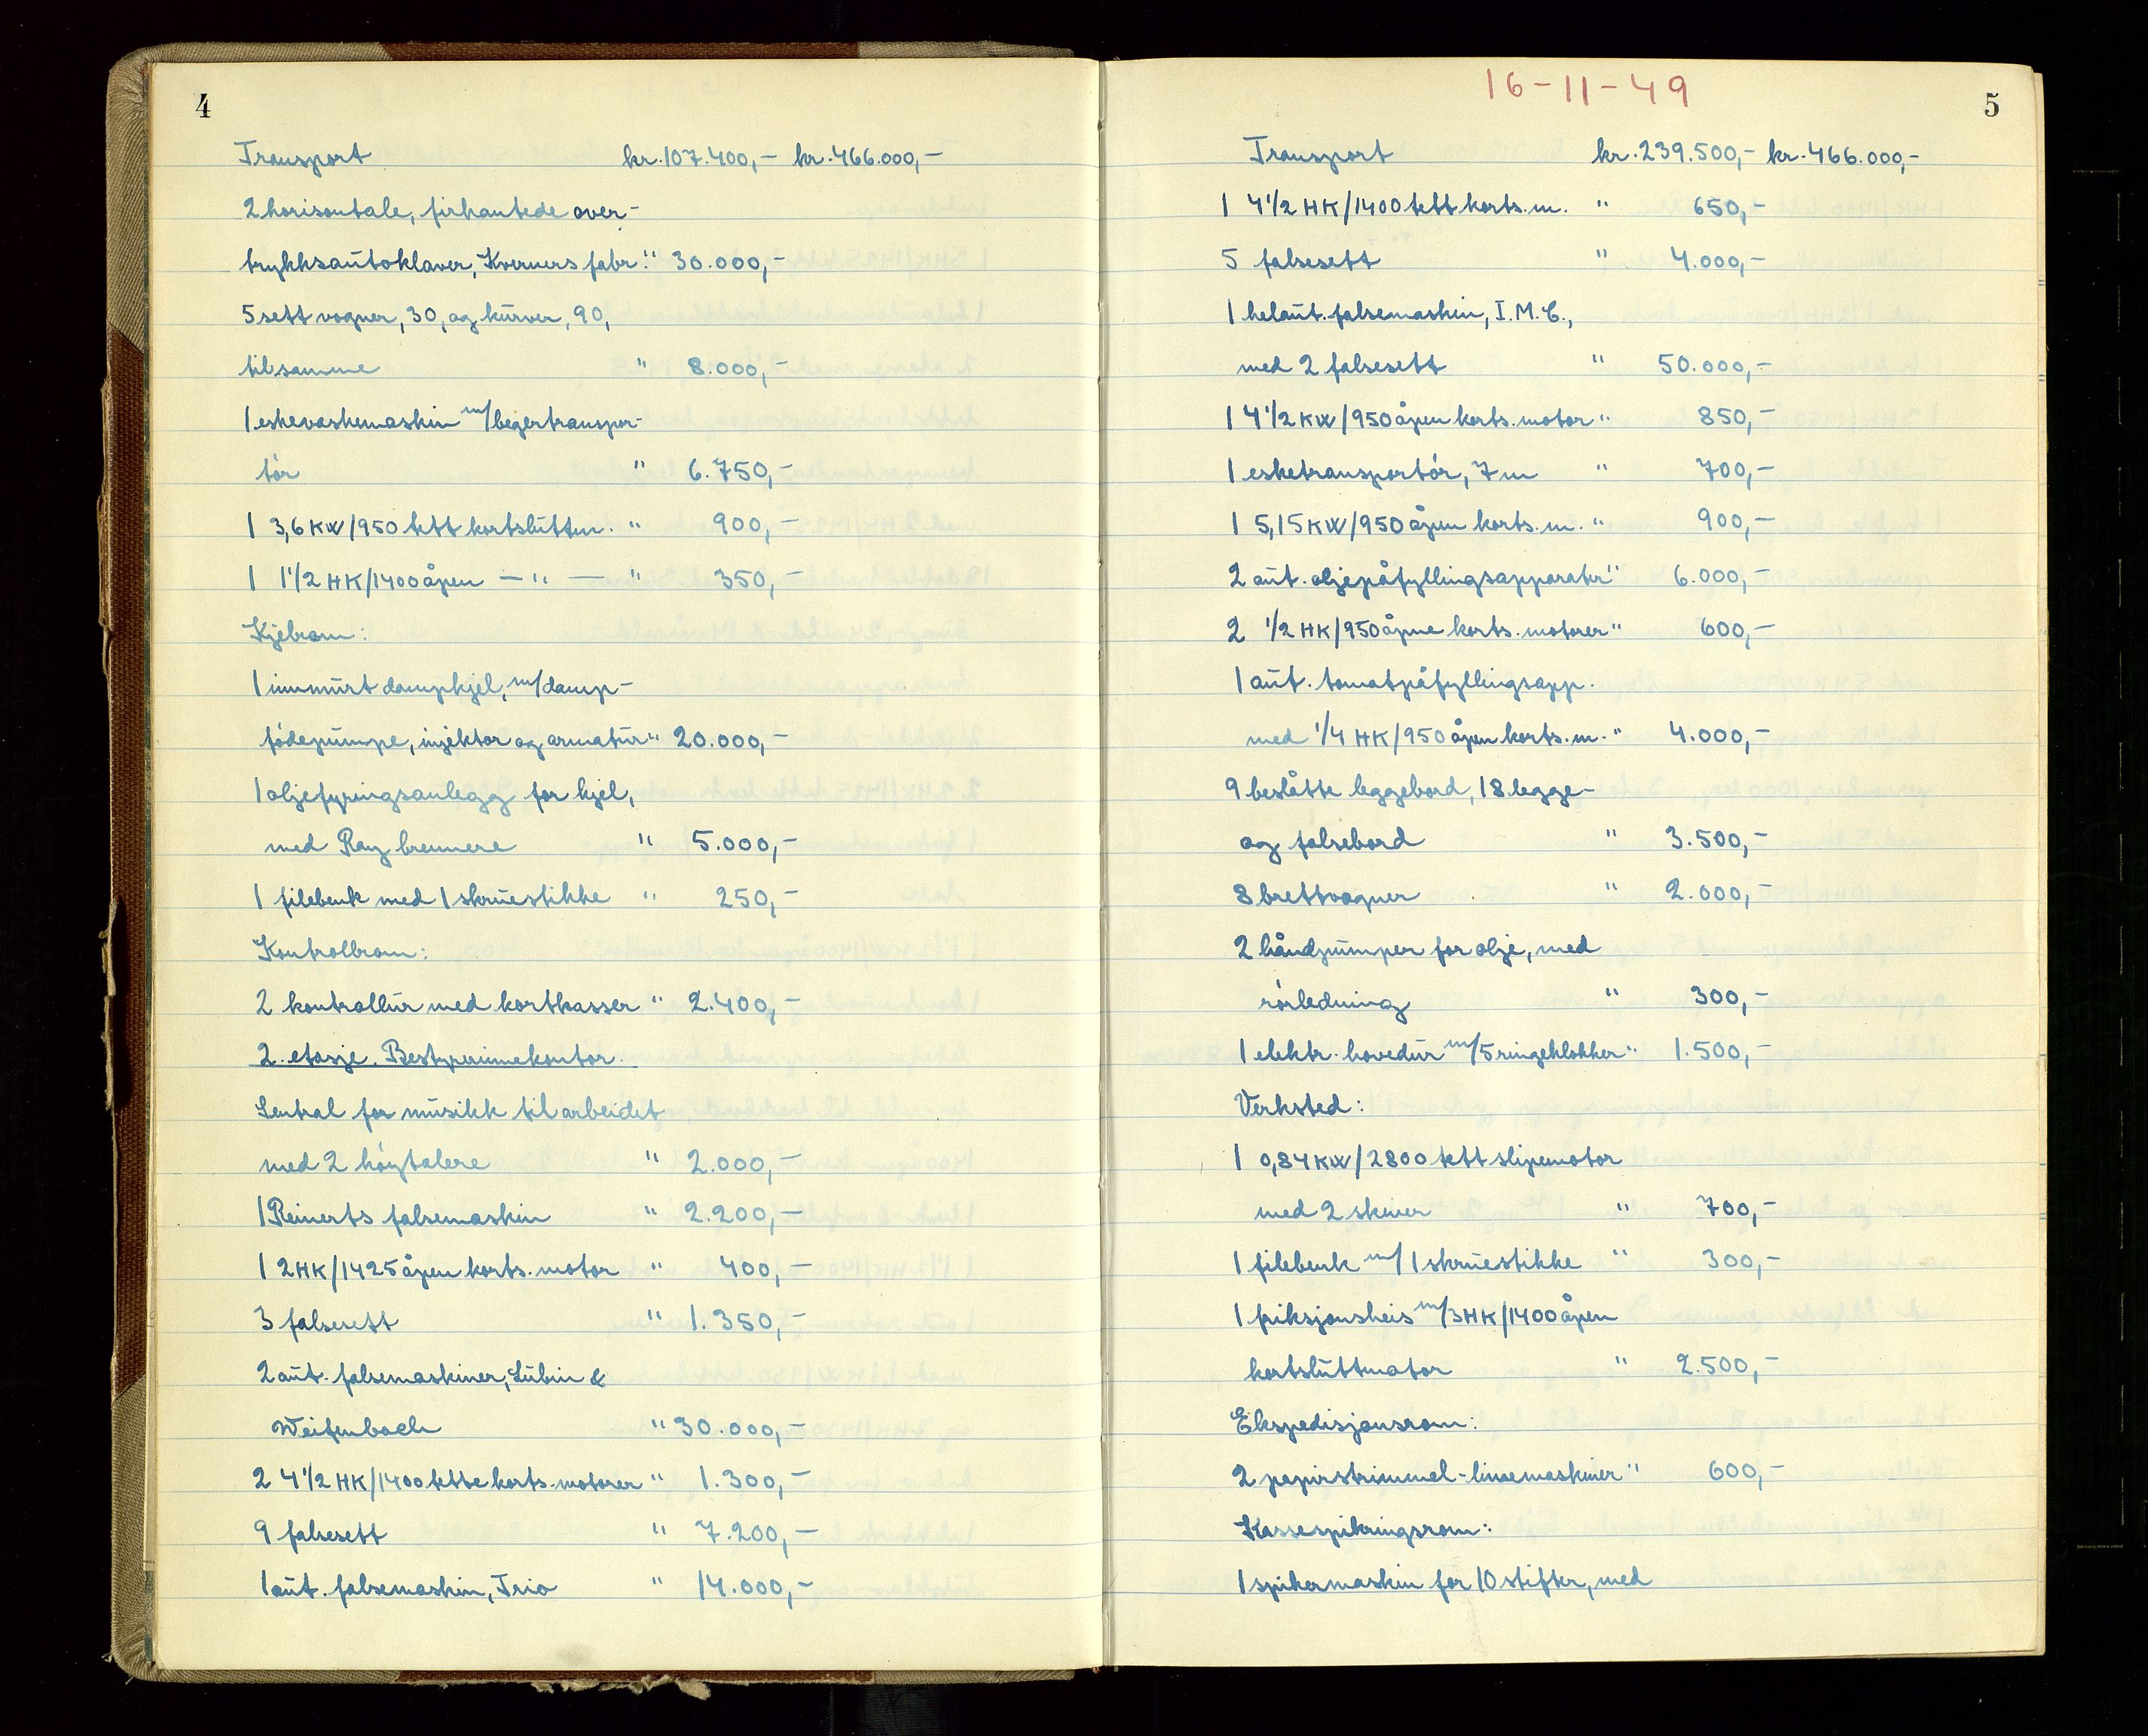 4
Transport kr. 107.400,- kr. 466.000,-
2 horisontale, firkantede over-
trykksautoklaver, Kverners fabr. " 30.000,-
5 sett vogner, 30, og kurver, 90,
til samme " 8.000,-
1 eskevaskemaskin m/begertranspor-
tór " 6.750,-
1 3,6 KW/950 tett kortsluttm. " 900,-
1 1 1/2 HK/1400 åpen — " — " 350,-
Kjelrom:
1 innmurt dampkjel, m/damp-
fódepumpe, injektor og armatur " 20.000,-
1 oljefyringsanlegg for kjel,
med Ray brennere " 5.000,-
1 filebenk med 1 skruestikke " 250,-
Kontrollrom:
2 kontrollur med kortkasser " 2.400,-
2. etasje. Bestyrerinnekontor.
Sentral for musikk til arbeidet
med 2 hóytalere " 2.000,-
1 Reinerts falsemaskin " 2.200,-
1 2 HK/1425 åpen korts. motor " 400,-
3 falsesett " 1.350,-
2 aut. falsemaskiner, Lubin &
Weifenbach " 30.000,-
2 4 1/2 HK/1400 tette korts. motorer " 1.300,-
9 falsesett " 7.200,-
1 aut. falsemaskin, Trio " 14.000,-
16-11-49
5
Transport kr. 239.500,- kr. 466.000,-
1 4 1/2 HK/1400 tett korts. m. " 650,-
5 falsesett " 4.000,-
1 helaut. falsemaskin, I.M.C.,
med 2 falsesett " 50.000,-
1 4 1/2 KW/950 åpen korts. motor " 850,-
1 esketransportór, 7 m " 700,-
1 5,15 KW/950 åpen korts. m. " 900,-
2 aut. oljepåfyllingsapparater " 6.000,-
2 1/2 HK/950 åpne korts. motorer " 600,-
1 aut. tomatpåfyllingsapp.
med 1/4 HK/950 åpen korts. m. " 4.000,-
9 beslåtte leggebord, 18 legge-
og falsebord " 3.500,-
8 brettvogner " 2.000,-
2 håndpumper for olje, med
rórledning " 300,-
1 elektr. hovedur m/5 ringeklokker " 1.500,-
Verksted:
1 0,84 KW/2800 tett slipemotor
med 2 skiver " 700,-
1 filebenk m/1 skruestikke " 300,-
1 friksjonsheis m/3 HK/1400 åpen
kortsluttmotor " 2.500,-
Ekspedisjonsrom:
2 papirstrimmel-limemaskiner " 600,-
Kassespikringsrom:
1 spikermaskin for 10 stifter, med